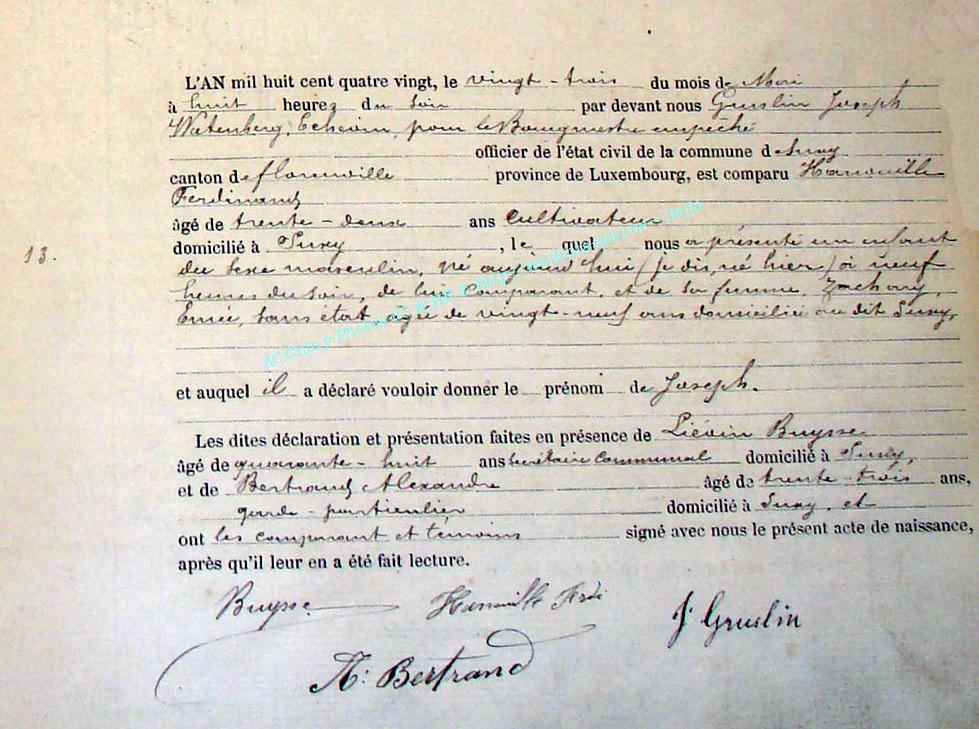 L'AN mil huit cent quatre vingt, le vingt-trois du mois de Mai
à huit heures du soir par devant nous Gruslin Joseph
Watenberg, Echevin, pour le Bourgmestre empêché
officier de l'état civil de la commune de Suxy
canton de florenville province de Luxembourg, est comparu
Ferdinand
âgé de trente-deux ans Cultivateur
domicilié à Suxy, le quel nous a présenté un enfant
13.
du sexe masculin, né aujourd'hui (je dis, né hier) à neuf
heures du soir, de lui comparant, et de sa femme, Zachary,
sans état, agée de vingt-neuf ans domiciliée au dit Suxy,
et auquel il a déclaré vouloir donner le prénom de Joseph.
Les dites déclaration et présentation faites en présence de Liévin Buysse
âgé de quarante-huit ans secrétaire communal domicilié à Suxy,
et de Bertrand Alexandre âgé de trente-trois ans,
garde-particulier domicilié à Suxy, et
ont les comparant et témoins signé avec nous le présent acte de naissance,
après qu'il leur en a été fait lecture.
Buysse Ferdi J Gruslin
A: Bertrand